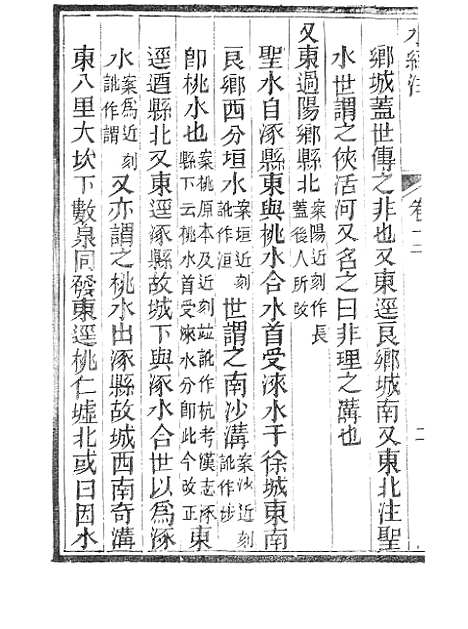 水經注 卷十二 二
鄉城蓋世傳之非也又東逕良鄉城南又東北注聖
水世謂之俠活河又名之曰非理之溝也
又東過陽鄉縣北案陽近刻作長蓋後人所改
聖水自涿縣東與桃水合水首受淶水于徐城東南
良鄉西分垣水案垣近刻訛作洹世謂之南沙溝案沙近刻訛作步
卽桃水也案桃原本及近刻竝訛作杭考漢志涿縣下云桃水首受淶水分卽此今改正東
逕遒縣北又東逕涿縣故城下與涿水合世以爲涿
水案爲近刻訛作謂又亦謂之桃水出涿縣故城西南奇溝
東八里大坎下數泉同發東逕桃仁墟北或曰因水